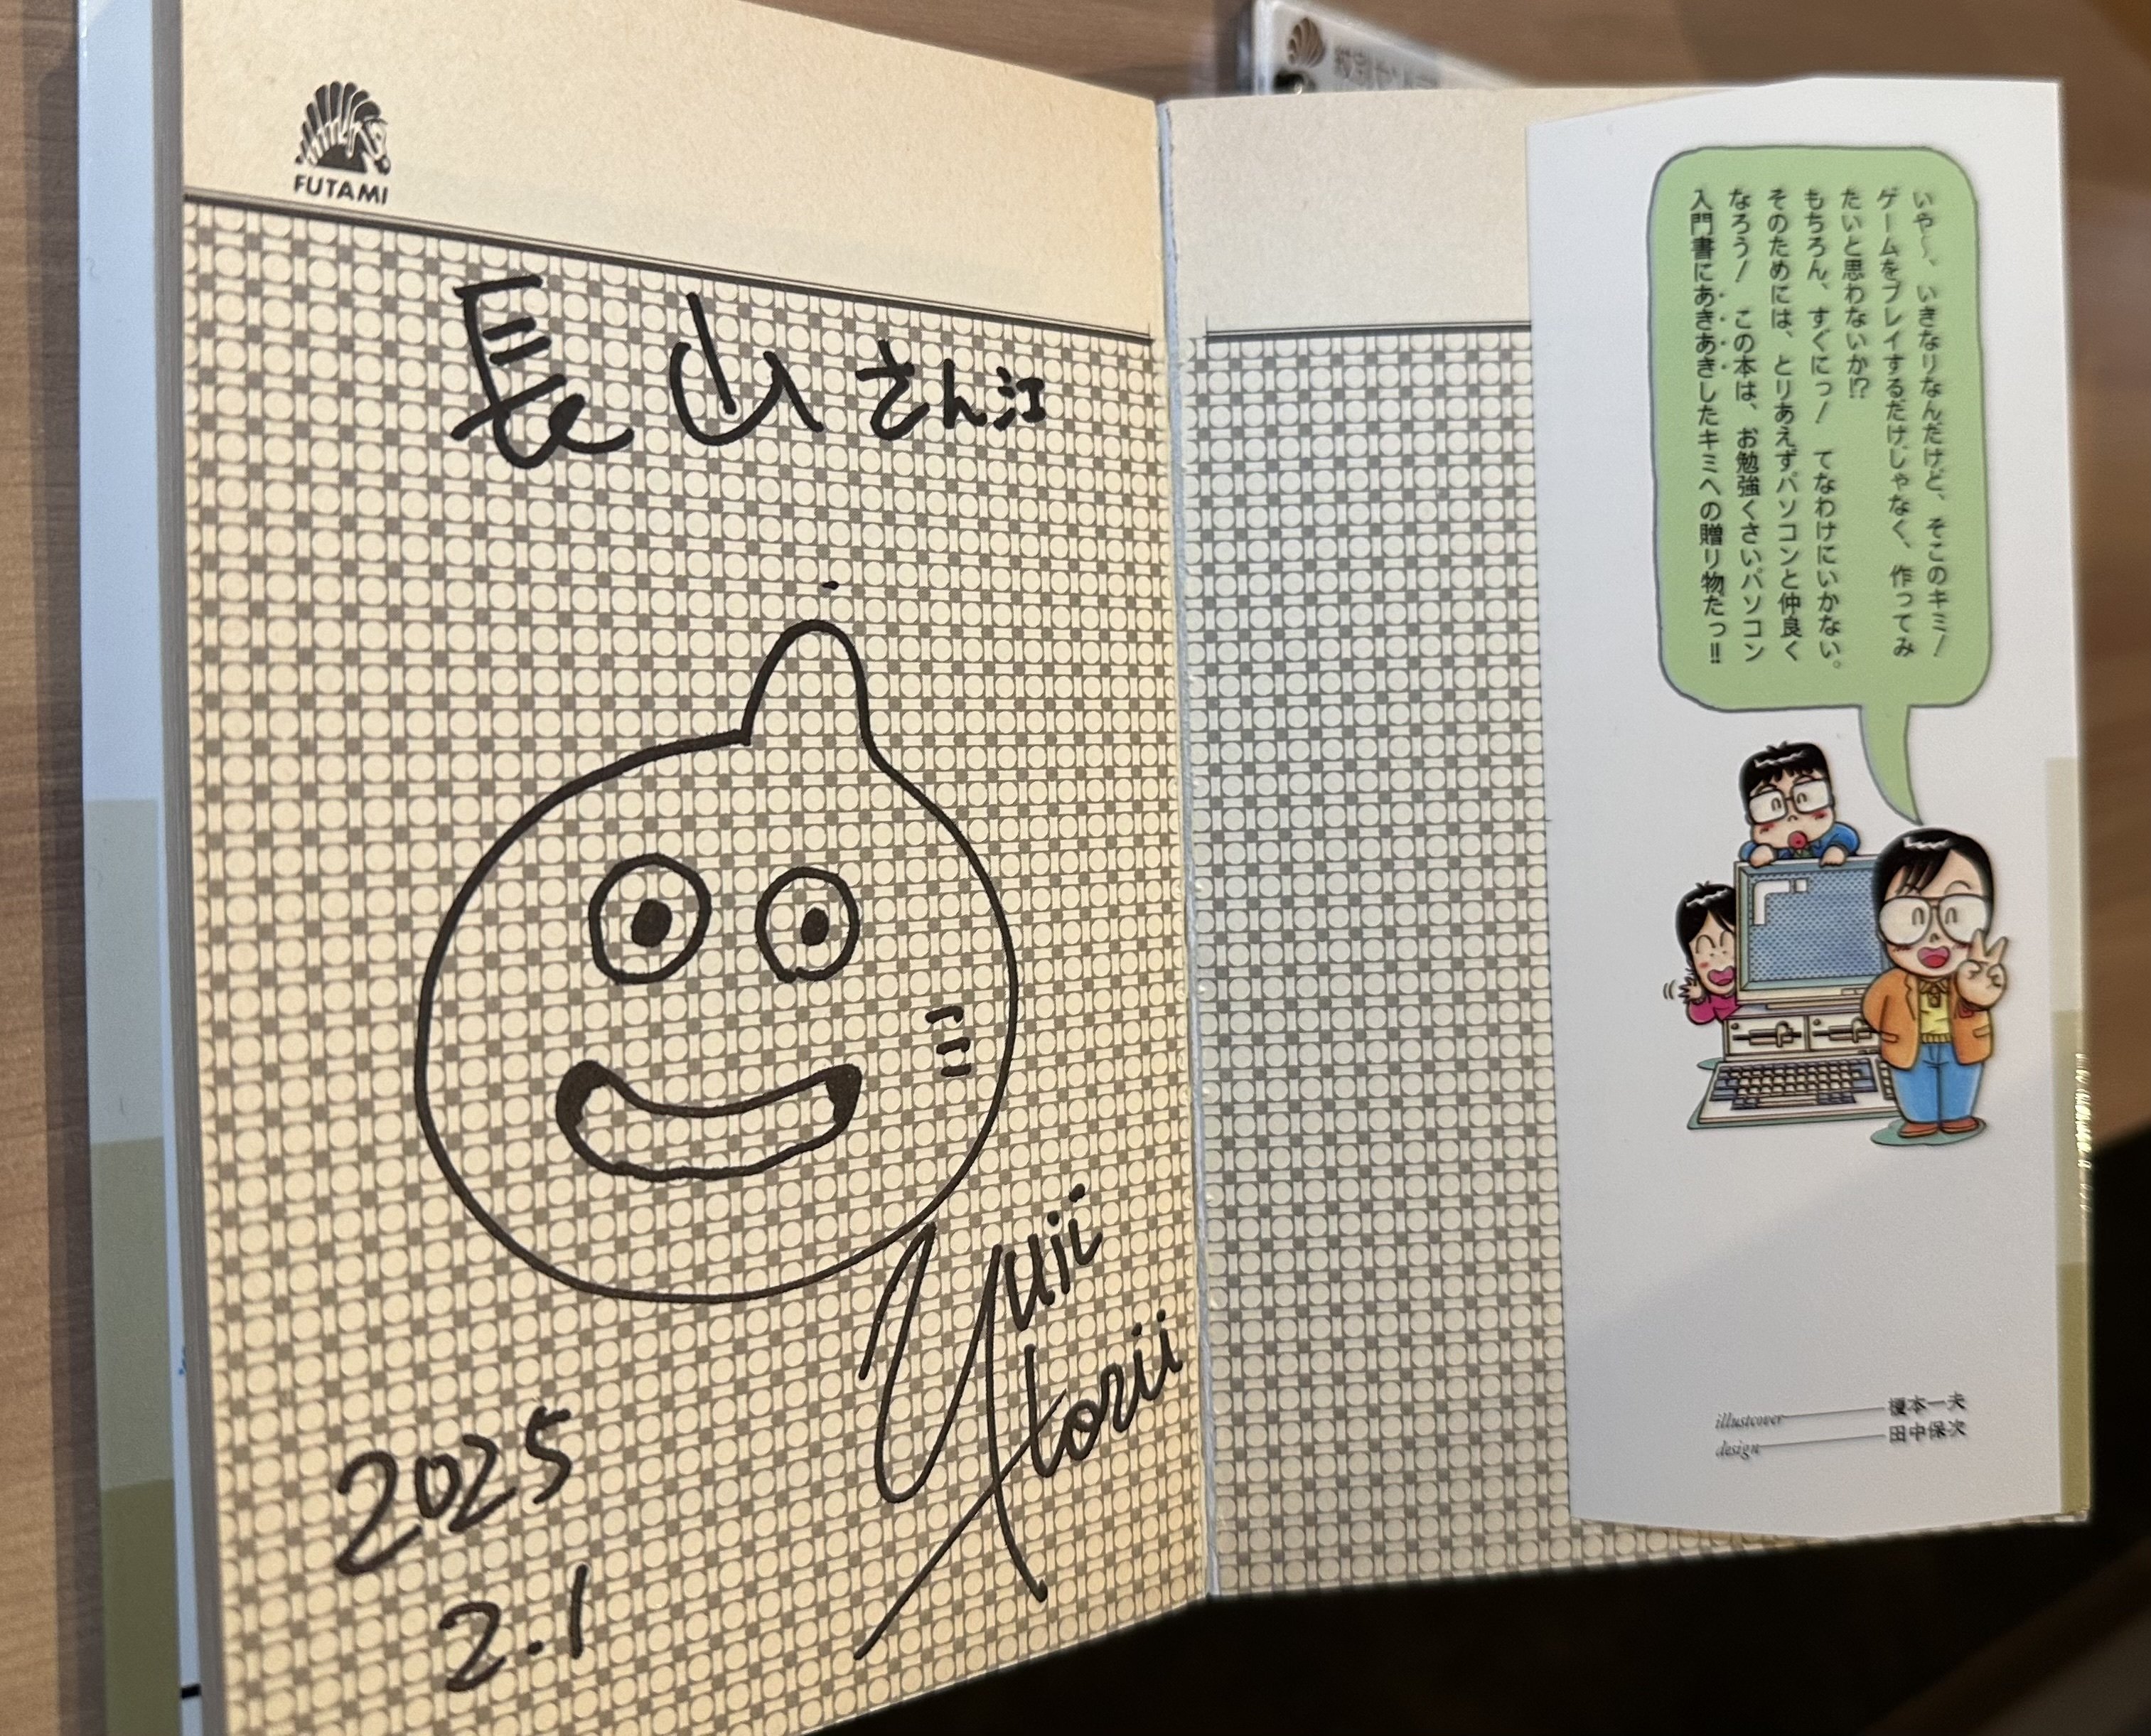 FUTAMI
長山さん江
Yuji
Horii
2025
2.1
いや〜、いきなりなんだけど、そこのキミ!
ゲームをプレイするだけじゃなく、作ってみ
たいと思わないか!?
もちろん、すぐにっ! てなわけにいかない。
そのためには、とりあえずパソコンと仲良く
なろう! この本は、お勉強くさいパソコン
入門書にあきあきしたキミへの贈り物だっ!!
illustcover 榎本一夫
design 田中保次